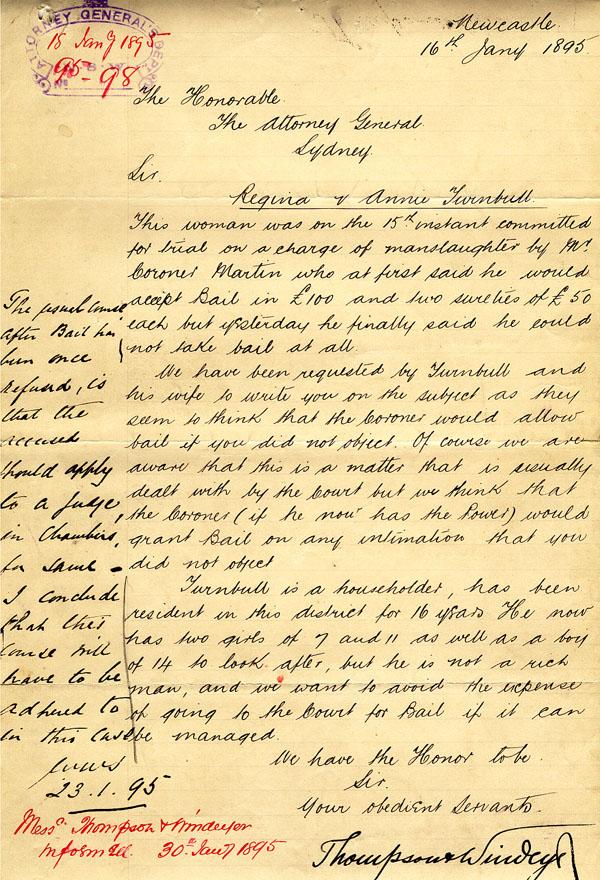 ATTORNEY GENERAL'S DEPT
18 Jany 1895
95-98
No
Newcastle
16th Jany 1895
The Honorable
The Attorney General
Sydney
Sir.
Regina v Annie Turnbull
This woman was on the 15th instant committed
for trial on a charge of manslaughter by Mr
Coroner Martin who at first said he would
accept Bail in £100 and two sureties of £50
each but yesterday he finally said he could
not take bail at all.
We have been requested by Turnbull and
his wife to write you on the subject as they
seem to think that the Coroner would allow
bail if you did not object. Of course we are
aware that this is a matter that is usually
dealt with by the Court but we think that
the Coroner (if he now has the Power) would
grant Bail on any intimation that you
did not object
Turnbull is a householder, has been
resident in this district for 16 years He now
has two girls of 7 and 11 as well as a boy
of 14 to look after, but he is not a rich
man, and we want to avoid the expense
of going to the Court for Bail if it can
be managed.
We have the Honor to be.
Sir.
Your obedient Servants.
Thompson & Windeyer
The usual course
after Bail has
been once
refused, is
that the
accused
should apply
to a Judge,
in Chambers,
for same -
I conclude
that this
course will
have to be
adhered to
in this case
23.1.95
Messrs Thompson & Windeyer
informed. 30th Jany 1895